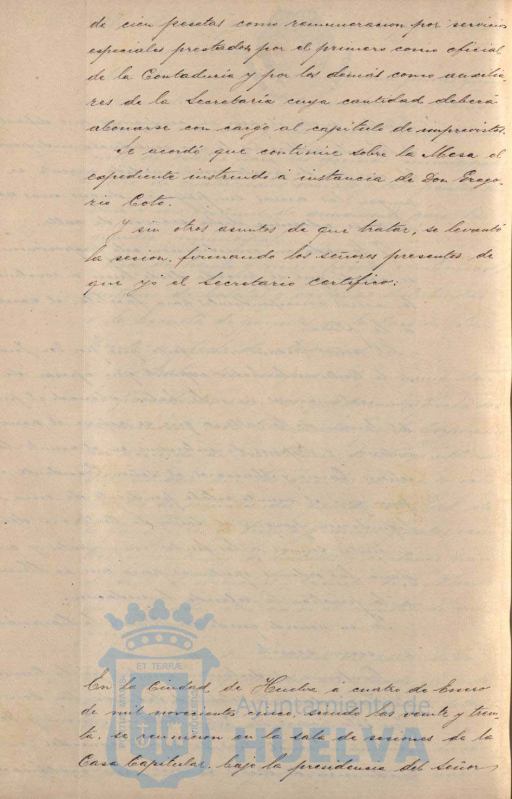 de cien pesetas como remuneracion por servicios
especiales prestados por el primero como oficial
de la Contaduría y por los demás como auxilia-
res de la Secretaría cuya cantidad deberá
abonarse con cargo al capítulo de imprevistos.
Se acordó que continúe sobre la Mesa el
expediente instruido á instancia de Don Grego-
rio Coto.
Y sin otros asuntos de que tratar, se levantó
la sesion, firmando los señores presentes de
que yó el Secretario certifico:
ET TERRÆ
En la Ciudad de Huelva á cuatro de Enero
Ayuntamiento de
de mil novecientos cinco, siendo las veinte y trein-
HUELVA
ta, se reunieron en la sala de sesiones de la
Casa Capitular, bajo la presidencia del Señor